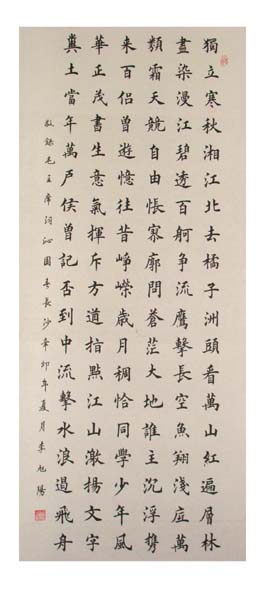 獨立寒秋湘江北去橘子洲頭看萬山紅遍層林
盡染漫江碧透百舸争流鷹擊長空魚翔淺底萬
類霜天競自由悵寥廓問蒼茫大地誰主沉浮攜
来百侶曾遊憶往昔崢嶸歲月稠恰同學少年風
華正茂書生意氣揮斥方遒指點江山激揚文字
糞土當年萬戶侯曾記否到中流擊水浪遏飛舟
敬錄毛主席詞沁園春長沙辛卯年夏月李旭陽